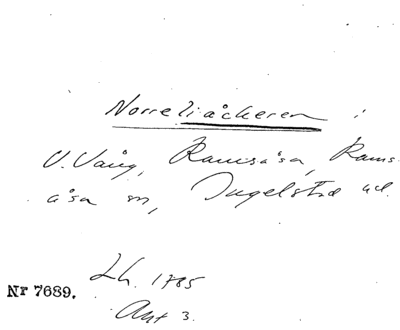 Norreliåckeren i
V. Vång, Ramsåsa, Rams-
åsa sn, Ingelstad hd.
Lh. 1785
Nr 7689.
Akt 3.